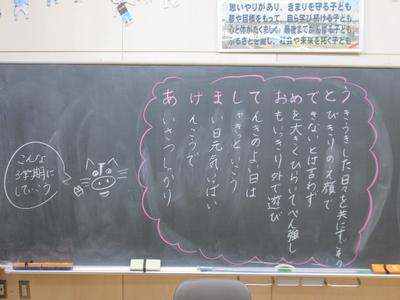 思いやりがあり、きまりを守る子ども
夢や目標をもって、自ら学び続ける子ども
心と体がたくましく、最後までがんばる子ども
ふるさとを愛し、社会や未来を拓く子ども
うきうきした日々を共にすごその
とびきりのえ顔で
できないとは言わず
めを大きくひらいてべん強し
おもいっきり外で遊び
てんきのよい日は
しゃきっといこう
まい日元気いっぱい
けんこうで
あいさつしっかり
こんな
3学期に
していこう